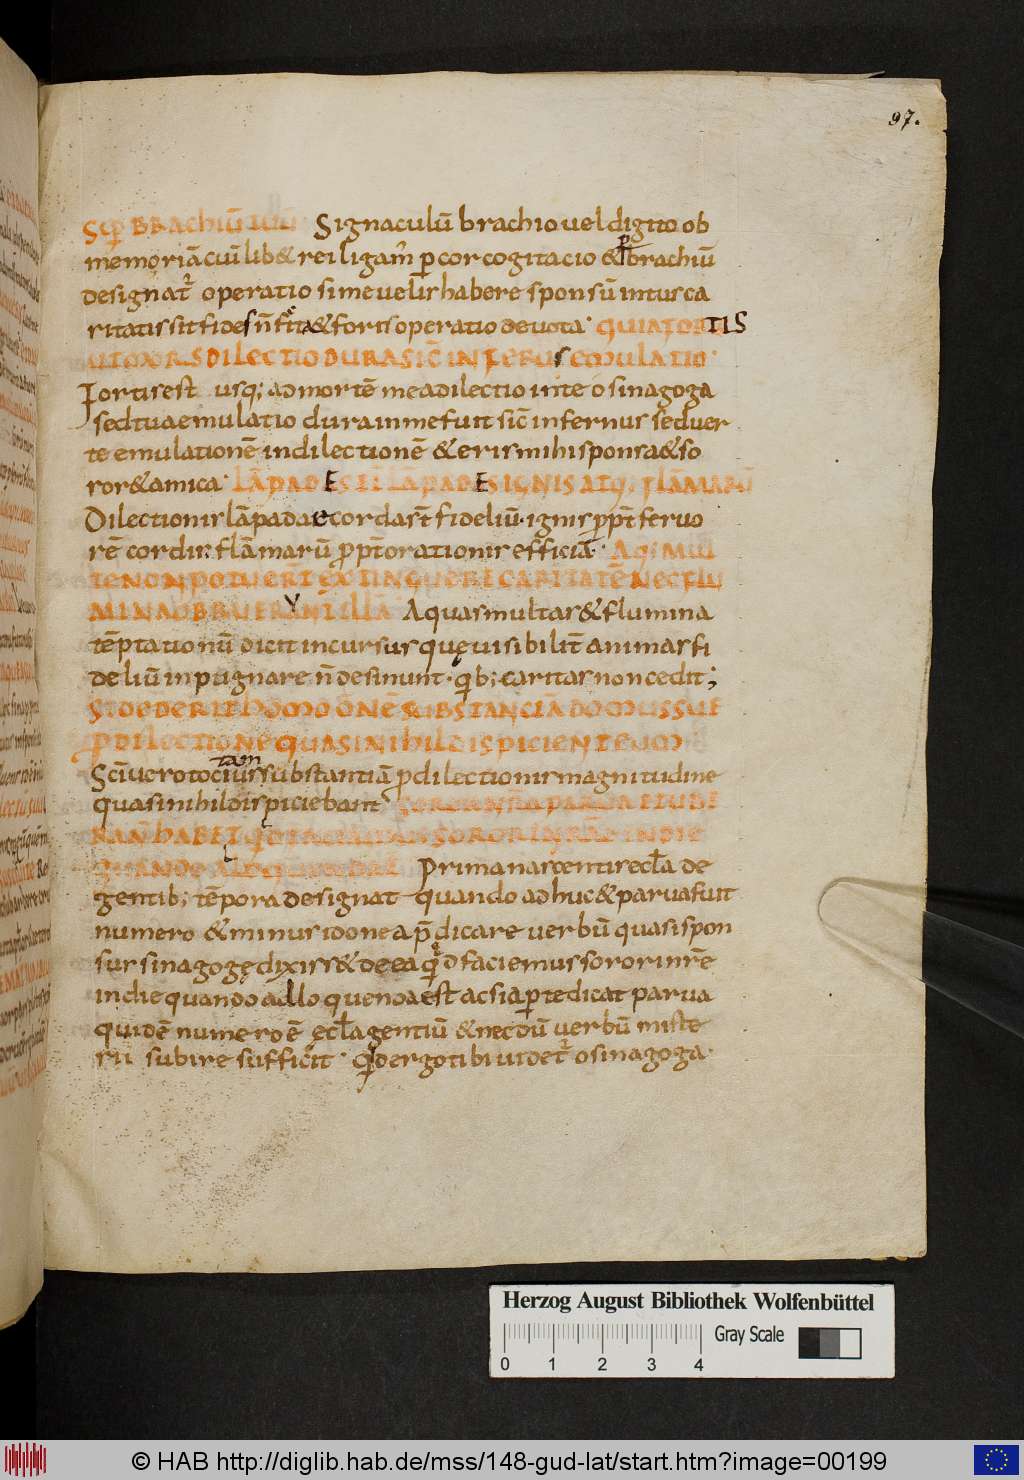 97.
Sup̄ BRAchiū tuū Signaculū brachio vel digito ob
memoriā cui lib& rei ligam̄ p̄ cor cogitacio & p̄ brachiū
designat̄ operatio si me velis habere sponsū intus ca
ritatis sit fides n̄ ficta & fortis operatio devota· QUIA FORTIS
UT MORS DILECTIO DURA SIC̄ INFERUS EMULATIO·
Fortis est usq; ad mortē mea dilectio in te o sinagoga
sed tua emulatio dura in me fuit sic̄ infernus sed ver
te emulationē in dilectionē & eris mihi sponsa & so
ror & amica· LĀPADES EI LĀPADES IGNIS ATQ; FLĀMARŪ
Dilectionis lāpadae corda st̄ fideliū· ignis p̄pt̄ fervo
rē cordis: flāmarū p̄pt̄ orationis efficiā· AQ; MUL
TE NON POTUERT̄ EXTINGUERE CARITATĒ NEC FLU
MINA OBRUERANT̄ ILLĀ Aquas multas & flumina
tēptationū dicit incursus quę visibilit̄ animas fi
deliū inpugnare n̄ desinunt· q̄b; caritas non cedit;
SI DEDERIT HOMO OM̄NĒ SUBSTANCIĀ DOMUS SUE
P̄ DILECTIONE QUASI NIHIL DISPICIENT EUM
Sc̄i vero tociuss tam substantiā p̄ dilectionis magnitudine
quasi nihil dispiciebant· SOROR NR̄A PARVA ET UBE
RA N̄ HABET QD FACIEMUS SORORI NR̄Ē IN DIE
QUANDO ALLOQUENDA Ē Prima nascentis eccl̄a de
gentib; tēpora designat quando adhuc & parva fuit
numero & minus idonea p̄dicare verbū quasi spon
sus sinagogę dixiss& de ea q̄d faciemus sorori nr̄ē
in die quando adlloquenda est ac si ap̄te dicat parva
quidē numero ē ęccl̄a gentiū & necdū verbū miste
rii subire sufficit· Q̄d ergo tibi videt̄ o sinagoga·
Herzog August Bibliothek Wolfenbüttel
Gray Scale
0 1 2 3 4
© HAB http://diglib.hab.de/mss/148-gud-lat/start.htm?image=00199